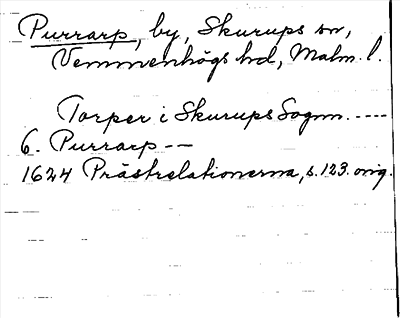 Purrarp, by, Skurups sn,
Vemmenhögs hd, Malm. l.
Torper i Skurups Sognn. ----
6. Purrarp --
1624 Prästrelationerna, s. 123. orig.